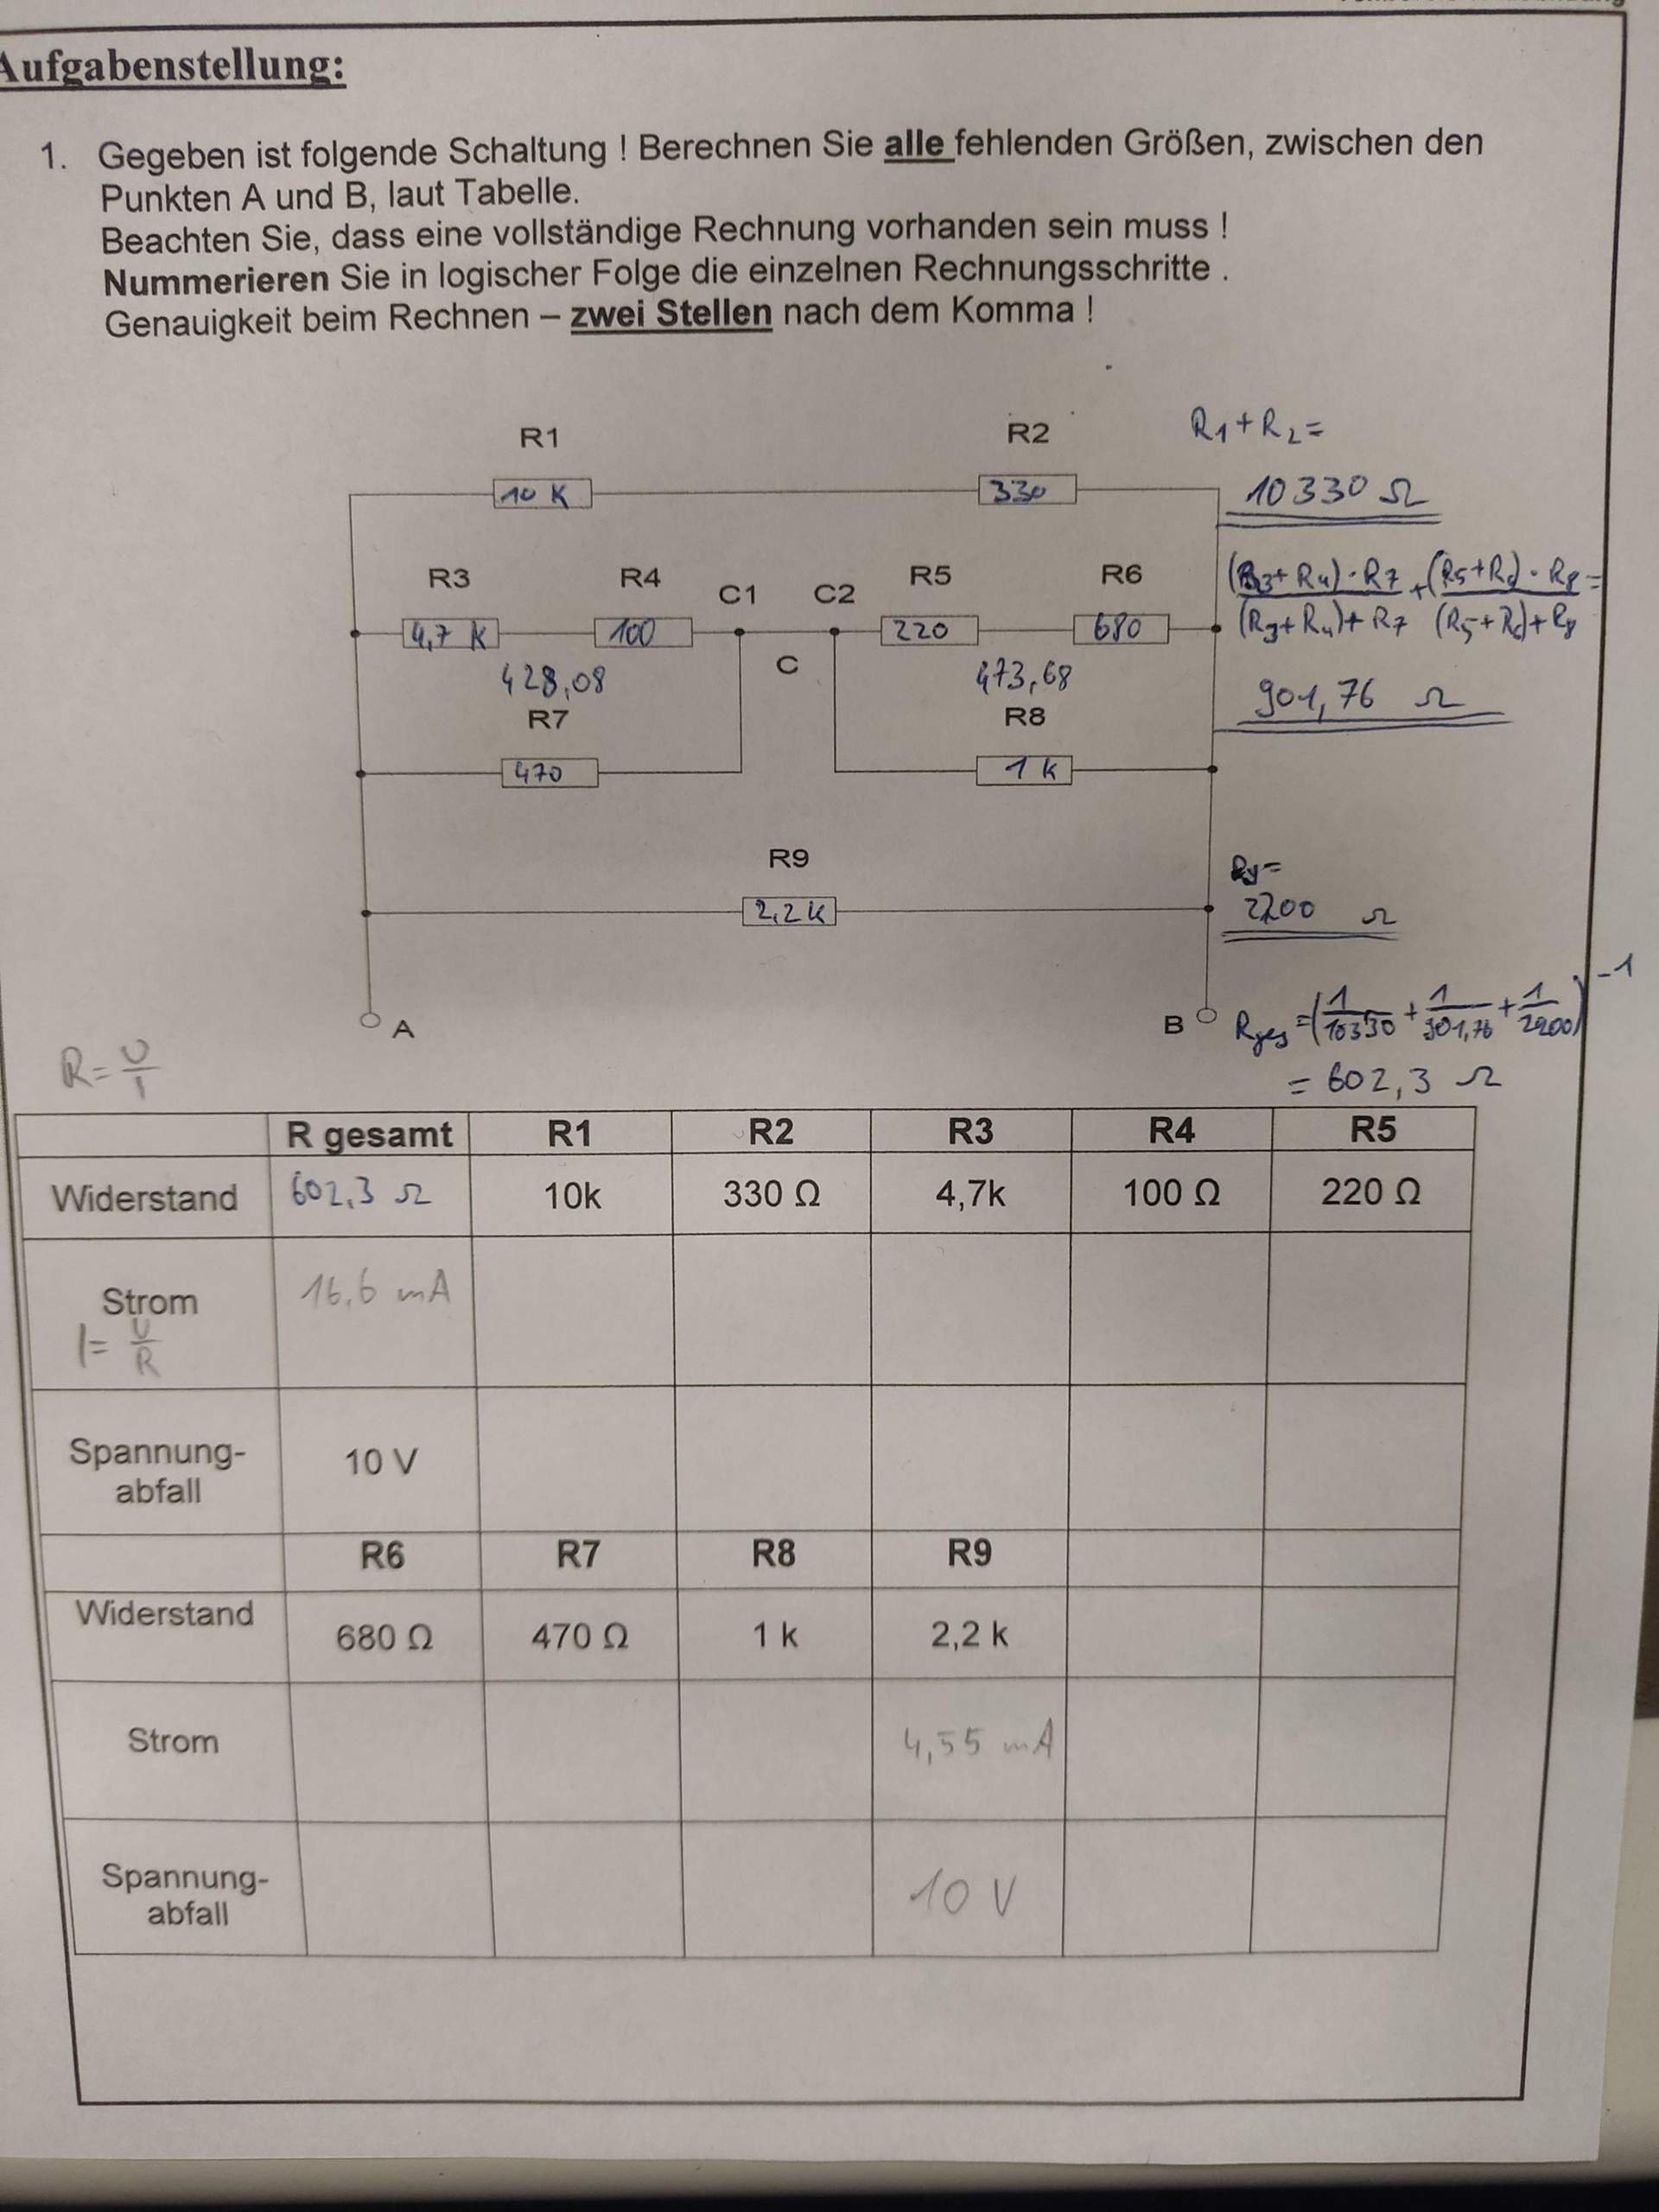 Aufgabenstellung:
1. Gegeben ist folgende Schaltung ! Berechnen Sie alle fehlenden Größen, zwischen den
Punkten A und B, laut Tabelle.
Beachten Sie, dass eine vollständige Rechnung vorhanden sein muss !
Nummerieren Sie in logischer Folge die einzelnen Rechnungsschritte .
Genauigkeit beim Rechnen – zwei Stellen nach dem Komma !
R1 R2 R1+R2=
10 K 330 10330 Ω
R3 R4 C1 C2 R5 R6
(R3+R4)·R7 + (R5+R6)·R8 =
(R3+R4)+R7 (R5+R6)+R8
4,7 K 100 220 680
C
428,08 473,68 901,76 Ω
R7 R8
470 1 k
R9 R9=
2,2 k 2200 Ω
A B Rges=(1/10330 + 1/901,76 + 1/2200)-1
R=U/I = 602,3 Ω
R gesamt R1 R2 R3 R4 R5
Widerstand 602,3 Ω 10k 330 Ω 4,7k 100 Ω 220 Ω
Strom 16,6 mA
I=U/R
Spannung-
abfall 10 V
R6 R7 R8 R9
Widerstand 680 Ω 470 Ω 1 k 2,2 k
Strom 4,55 mA
Spannung-
abfall 10 V